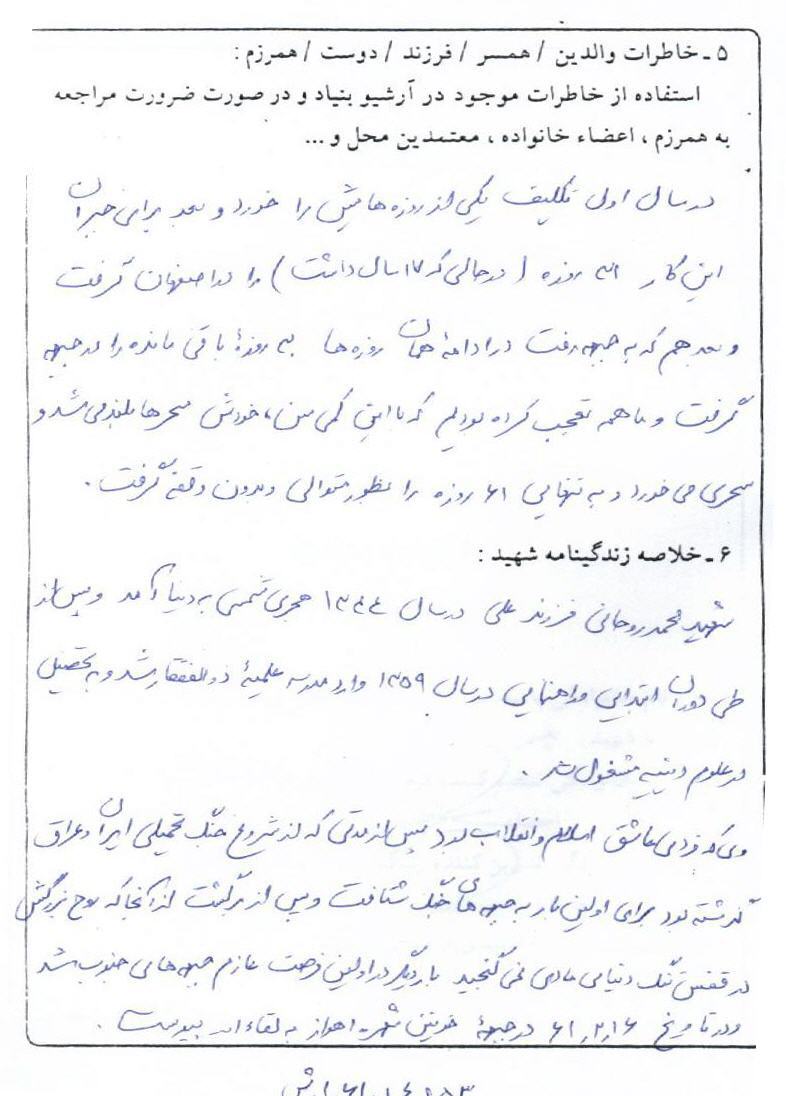 ۵ ـ خاطرات والدین / همسر / فرزند / دوست / همرزم :
استفاده از خاطرات موجود در آرشیو بنیاد و در صورت ضرورت مراجعه
به همرزم ، اعضاء خانواده ، معتمدین محل و ...
در سال اول تکلیف یکی از روزه هایش را خورد و بعد برای جبران
این کار ۳۱ روزه ( در حالی که ۱۷ سال داشت ) را در اصفهان گرفت
و بعد هم که به جبهه رفت در ادامهٔ همان روزه ها ۳۰ روزهٔ باقی مانده را در جبهه
گرفت و ما همه تعجب کرده بودیم که با این کمی سن ، خودش سحرها بلند می شد و
سحری می خورد و به تنهایی ۶۱ روزه را بطور متوالی و بدون وقفه گرفت .
۶ ـ خلاصه زندگینامه شهید :
شهید محمد روحانی فرزند علی در سال ۱۳۴۴ هجری شمسی به دنیا آمد و پس از
طی دوران ابتدایی و راهنمایی در سال ۱۳۵۹ وارد مدرسه علمیهٔ ذوالفقار شد و به تحصیل
در علوم دینیه مشغول شد .
وی که فردی عاشق اسلام و انقلاب بود پس از مدتی که از شروع جنگ تحمیلی ایران و عراق
گذشته بود برای اولین بار به جبهه های جنگ شتافت و پس از برگشت از آنجا که روح بزرگش
در قفس تنگ دنیای مادی نمی گنجید بار دیگر در اولین فرصت عازم جبهه های جنوب شد
و در تاریخ ۶۱,۲,۱۶ در جبههٔ خونین شهر اهواز به لقاء الله پیوست .